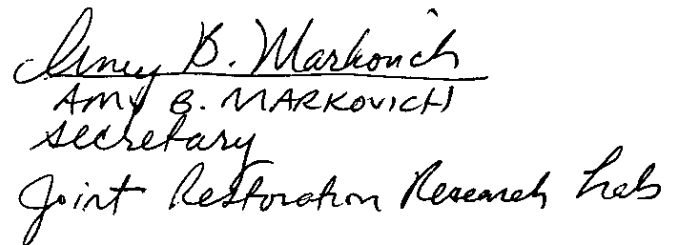 Amy B. Markovich
AMY B. MARKOVICH
Secretary
Joint Restoration Research Labs